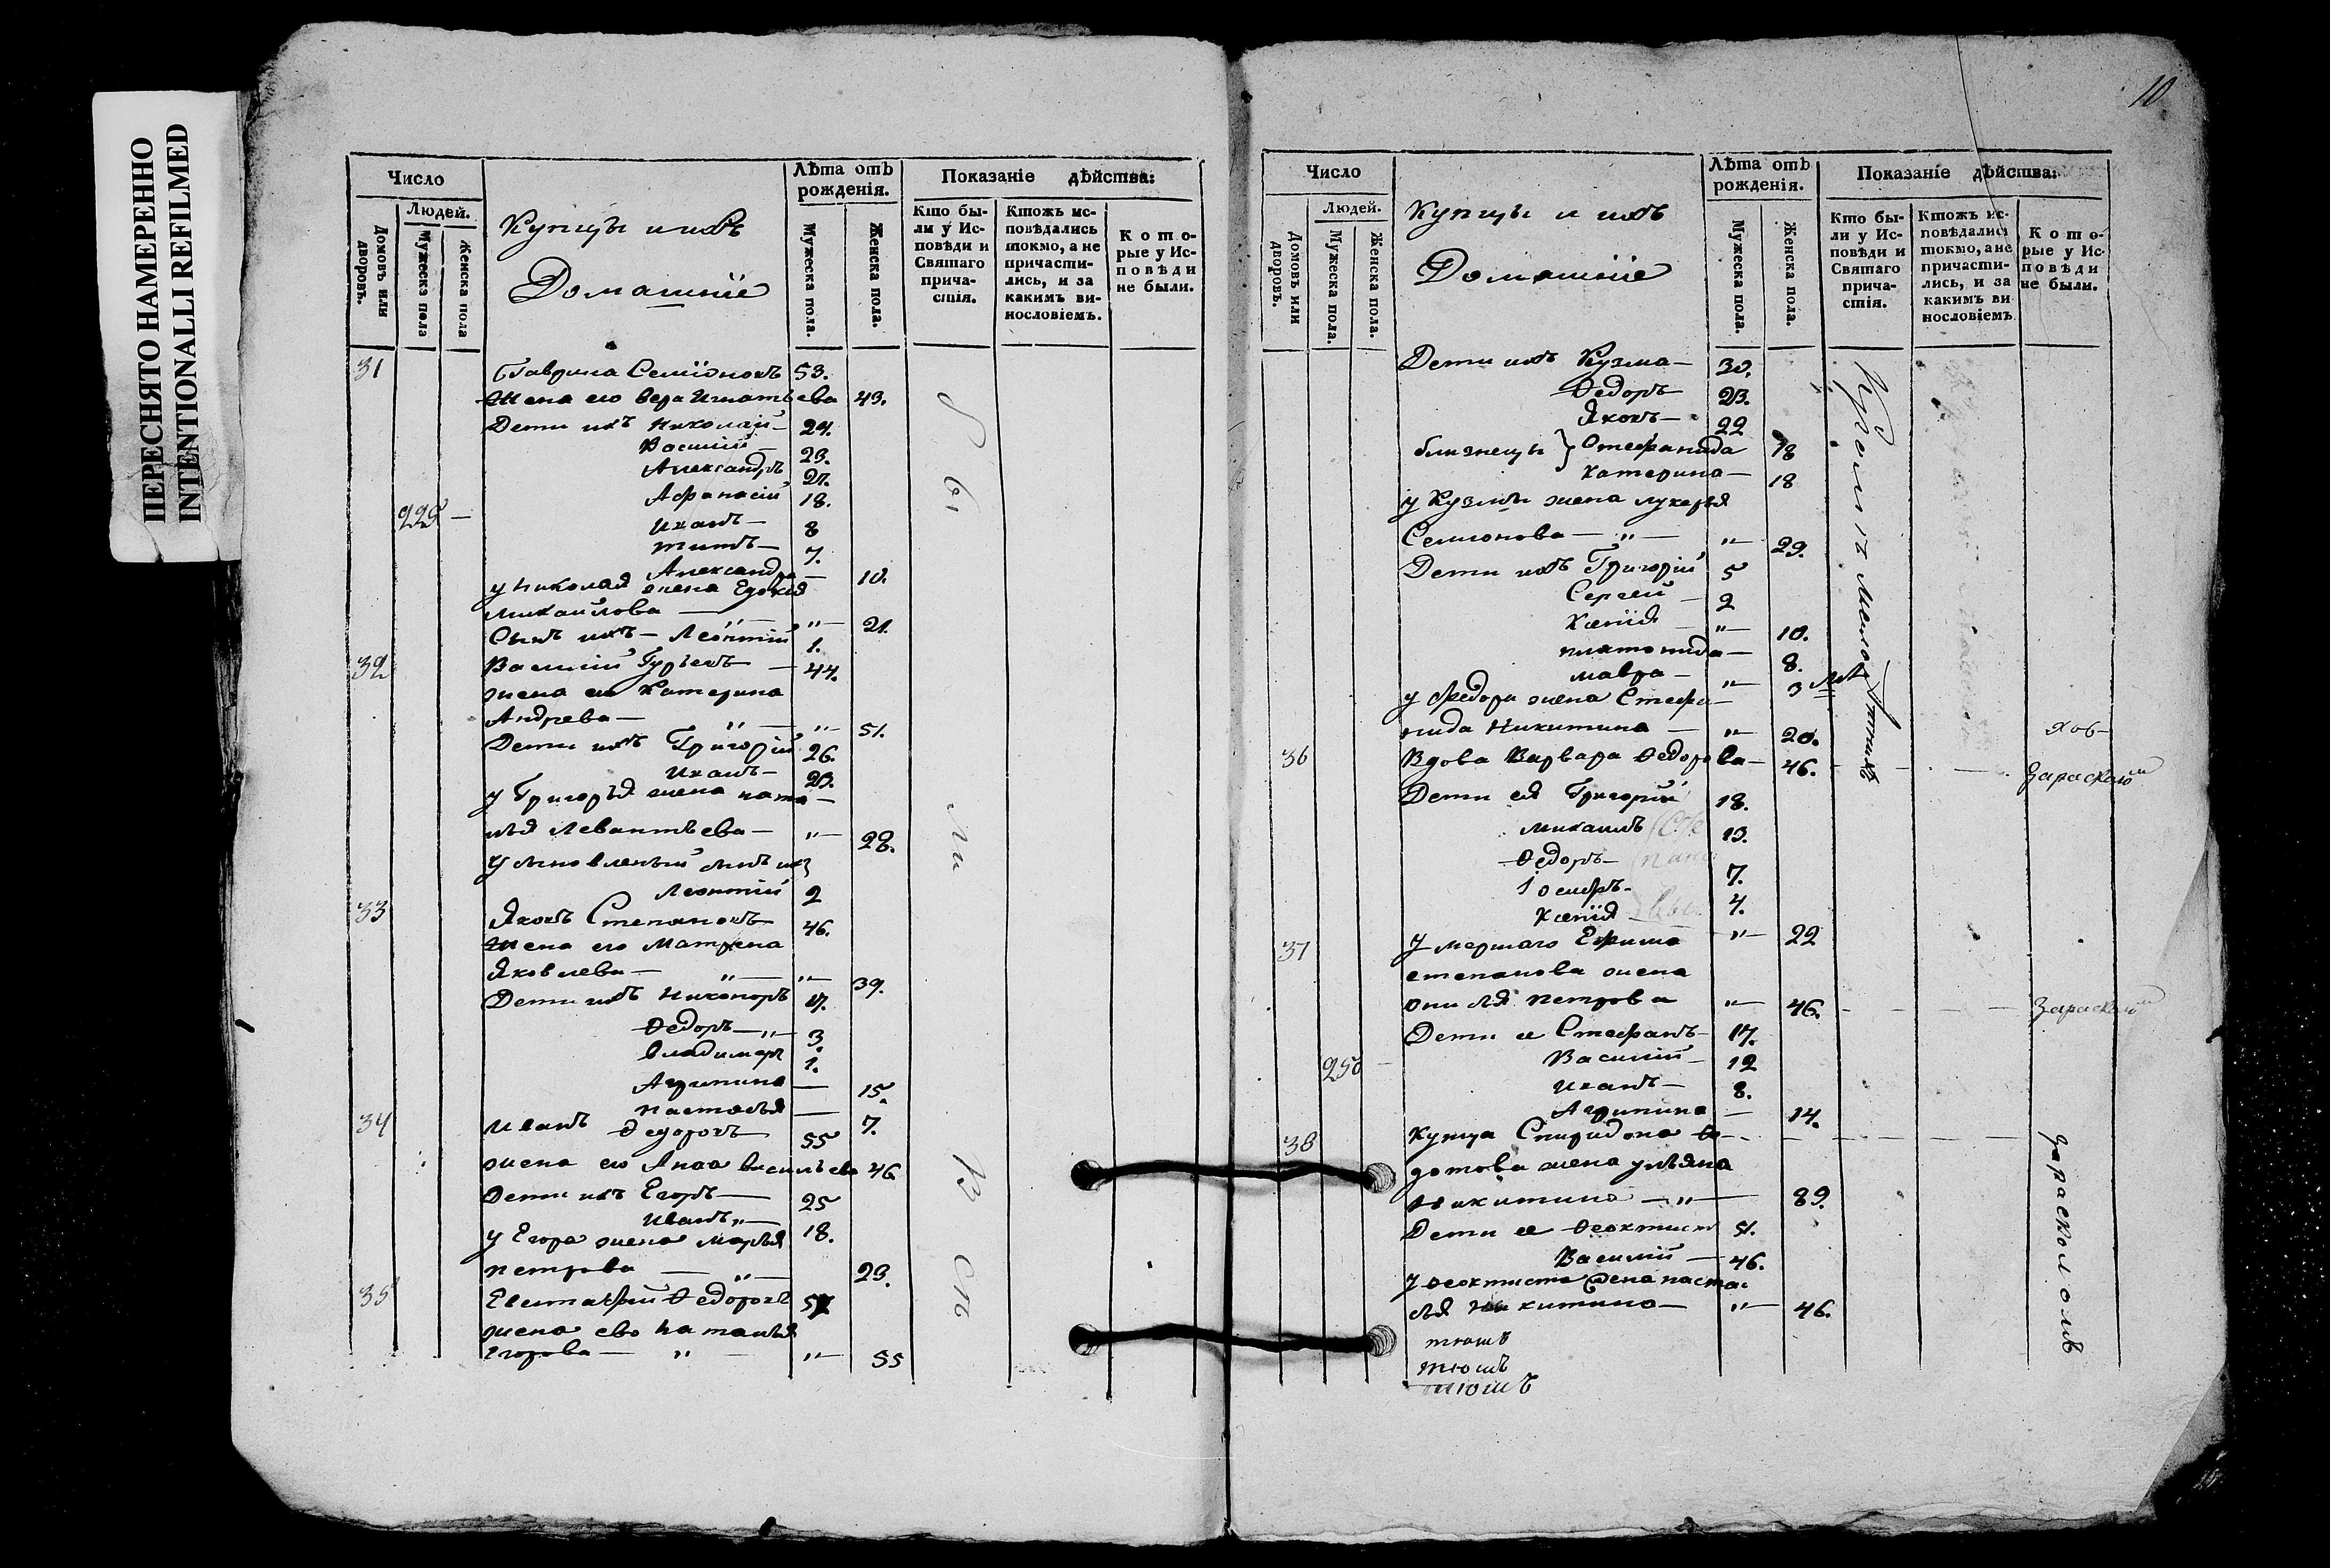 ПЕРЕСНЯТО НАМЕРЕННО
INTENTIONALLI REFILMED
Число
Людей.
Домовъ или дворовъ.
Мужеска пола
Женска пола
Купцы и ихъ
Домашніе
Лѣта отъ рожденія.
Мужеска пола.
Женска пола.
Показаніе дѣйства:
Кто бы-
ли у Ис-
повѣди и
Святаго
прича-
стія.
Ктожъ ис-
повѣдались
токмо, а не
причасти-
лись, и за
какимъ ви-
нословіемъ.
Кото-
рые у Ис-
повѣди
не были.
31 Гаврила Семіоновъ 53.
Жена его Вера Игнатьева 43.
Дети ихъ Николай 24.
Василій 23.
Александръ 21.
Афанасій 18.
225 Иванъ 8
Титъ 7.
Александра 10.
у Николая жена Едокія
Михаилова 21.
Сынъ ихъ Леонтій 1.
32 Василий Гурьевъ 44.
жена ево Катерина
Андрева 51.
Дети ихъ Григорій 26.
Иванъ 23.
у Григорья жена ната-
лья Левантьева 28.
Усыновленый
Леонтій 2
33 Яковъ Степановъ 46.
Жена его Матрена
Яковлева 39.
Дети ихъ Никоноръ 17.
Ѳедоръ 3.
Владимеръ 1.
Агрипина 15.
Настасья 7.
34 Иванъ Ѳедоровъ 55
жена его Анна Васильева 46
Дети ихъ Егоръ 25
Иванъ 18.
у Егора жена Марья
Петрова 23.
35 Евстафій Ѳедоровъ 57
жена ево Наталья
Егорова 55
бы
ли
Вс
съ
10
Число
Людей.
Домовъ или дворовъ.
Мужеска пола.
Женска пола.
Купцы и ихъ
Домашніе
Лѣта отъ рожденія.
Мужеска пола.
Женска пола.
Показаніе дѣйства:
Кто бы-
ли у Ис-
повѣди и
Святаго
прича-
стія.
Ктожъ ис-
повѣдались
токмо, а не
причасти-
лись, и за
какимъ ви-
нословіемъ
Кото-
рые у Ис-
повѣди
не были.
Дети ихъ Кузма 30.
Ѳедоръ 23.
Яковъ 22
близнецы } Стефанида 18
Катерина 18
у Кузмы жена Лукерья
Семионова 29.
Дети ихъ Григорій 5
Сергей 2
Ксенія 10.
платонида 8.
мавра 3
у Федора жена Стефа-
нида Никитина 20.
36 Вдова Варвара Ѳедорова 46. Зараскол
Дети ея Григорій 18.
Михаилъ 13.
Ѳедоръ 7.
Іосифъ 4.
Ксенія 22
37 Умершаго Ефима
степанова жена
Онисья Петрова 46. Зараскол
Дети ее Стефанъ 17.
Василій 12
250 Иванъ 8.
Агрипина 14.
38 Купца Спиридона Фе-
дотова жена ульяна
Никитина 89.
Дети ее Ѳеоктистъ 51.
Василій 46.
у Ѳеоктиста жена наста-
сья Никитина 46.
тюшъ
тюшъ
тюшъ
Зарасколомъ